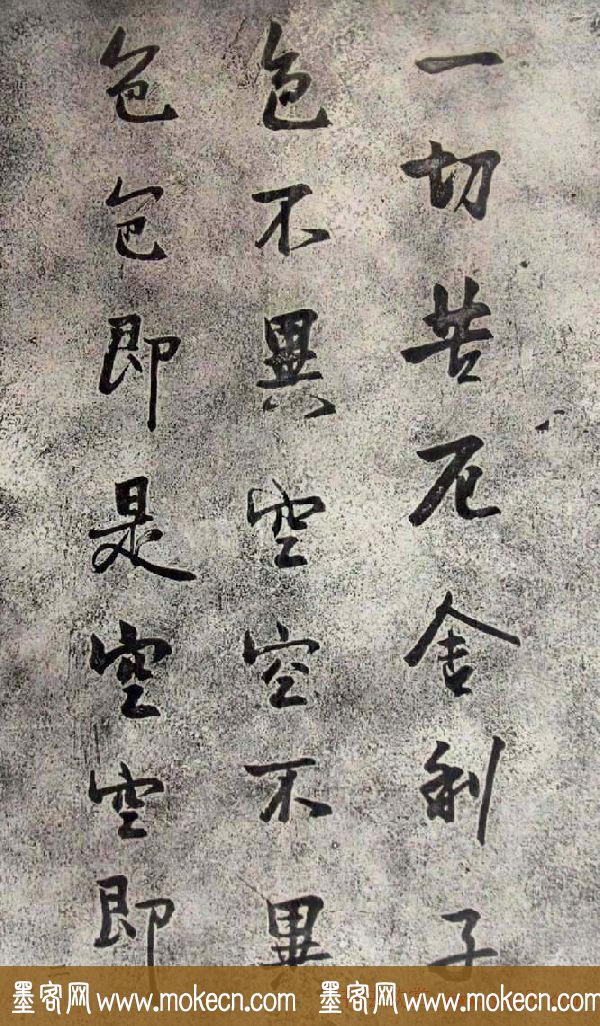 一切苦厄舍利子
色不異空空不異
色色即是空空即
墨客网 www.mokecn.com 墨客网 www.mokecn.com